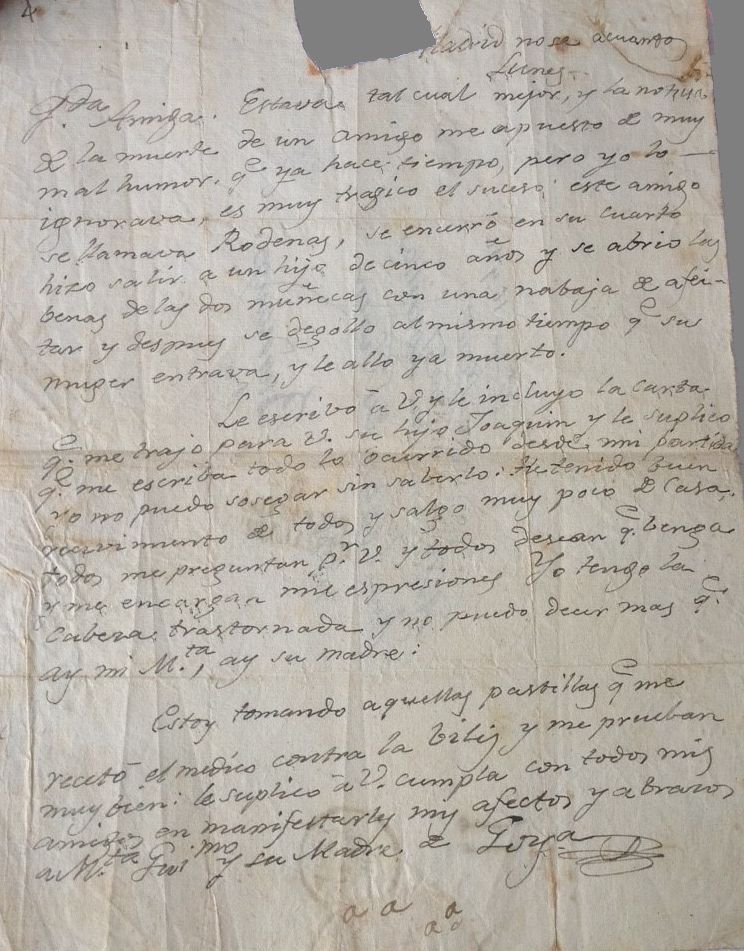 4
Madrid no se a cuantos
Lunes
Q.da Amiga. Estava tal cual mejor, y la noticia
de la muerte de un amigo me a puesto de muy
mal humor. q.e ya hace tiempo, pero yo lo —
ignorava, es muy tragico el suceso: este amigo
se llamava Rodenas, se encerró en su cuarto
hizo salir a un hijo de cinco años y se abrio las
benas de las dos muñecas con una nabaja de afei-
tar y despues se degollo al mismo tiempo q.e su
muger entrava, y le allo ya muerto.
Le escribo â V. y le incluyo la carta
q.e me trajo para V. su hijo Joaquin y le suplico
q.e me escriba todo lo ocurrido desde mi partida
yo no puedo sosegar sin saberlo: He tenido buen
recivimiento de todos y salgo muy poco de casa,
todos me preguntan p.r V. y todos desean q.e benga
y me encargan mil espresiones Yo tengo la
cabeza trastornada y no puedo decir mas q.e
ay mi M.ta, ay su madre:
Estoy tomando aquellas pastillas q.e me
recetó el medico contra la bilis y me prueban
muy bien: le suplico â V. cumpla con todos mis
amigos en manifestarles mis afectos y abrazos
a M.ta Gui.mo y su Madre de Goya
a a a a